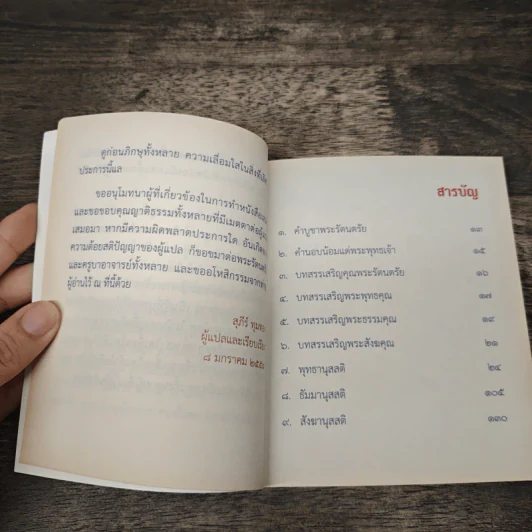 ดูก่อนภิกษุทั้งหลาย ความเลื่อมใสในสิ่งที่เลิศ
ประการนี้แล
ขออนุโมทนาผู้ที่เกี่ยวข้องในการทำหนังสือ
และขอขอบคุณญาติธรรมทั้งหลายที่มีเมตตาต่อ
เสมอมา หากมีความผิดพลาดประการใด อันเกิด
ความด้อยสติปัญญาของผู้แปล ก็ขอขมาต่อพระรัตน
และครูบาอาจารย์ทั้งหลาย และขออโหสิกรรมจาก
ผู้อ่านไว้ ณ ที่นี้ด้วย
สุภีร์
ผู้แปลและเรียบเรียง
๘ มกราคม
สารบัญ
๑. คำบูชาพระรัตนตรัย ๑๓
๒. คำนอบน้อมแด่พระพุทธเจ้า ๑๕
๓. บทสรรเสริญคุณพระรัตนตรัย ๑๖
๔. บทสรรเสริญพระพุทธคุณ ๑๗
๕. บทสรรเสริญพระธรรมคุณ ๑๙
๖. บทสรรเสริญพระสังฆคุณ ๒๑
๗. พุทธานุสสติ ๒๔
๘. ธัมมานุสสติ ๑๐๕
๙. สังฆานุสสติ ๑๓๐